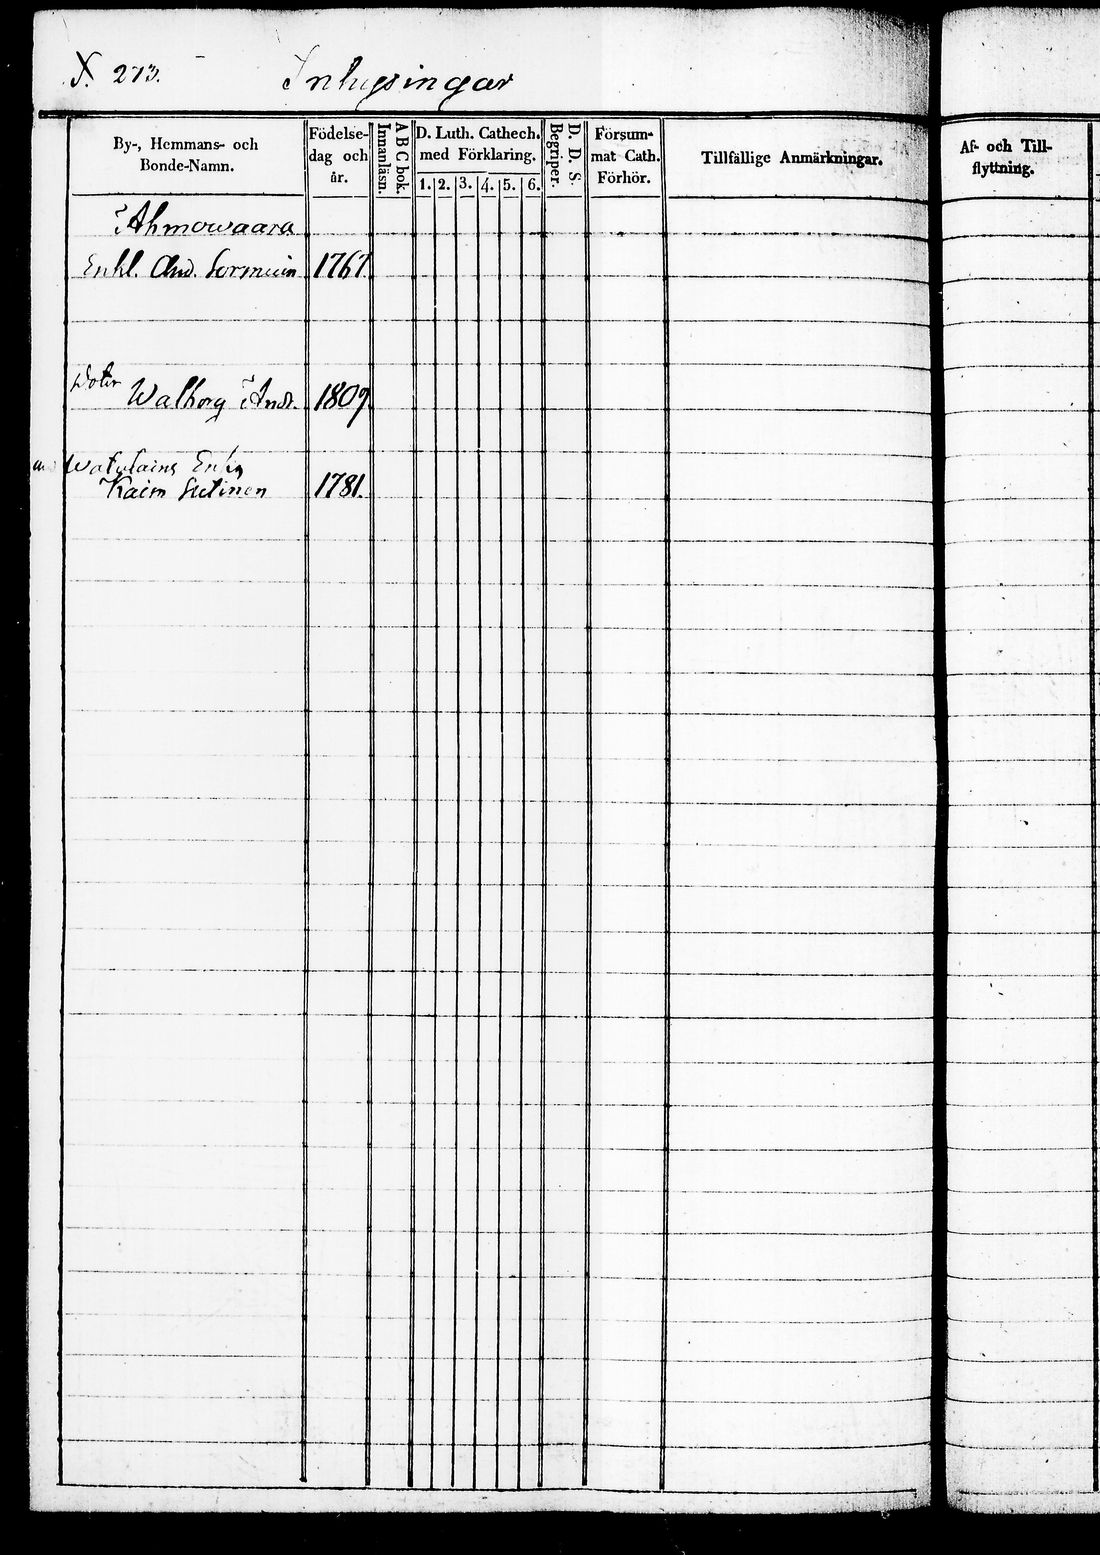 N. 273. Inhysingar
By-, Hemmans- och
Bonde-Namn.
Födelse-
dag och
år.
Innanläsn.
A B C bok.
D. Luth. Cathech.
med Förklaring.
1. 2. 3. 4. 5. 6.
Begriper.
D. D. S.
Försum-
mat Cath.
Förhör.
Tillfällige Anmärkningar.
Af- och Till-
flyttning.
Ahmowaara
Enkl. And. Sormuin 1767.
Doter
Walborg And. 1809.
Enka
Kaim Sutinen 1781.